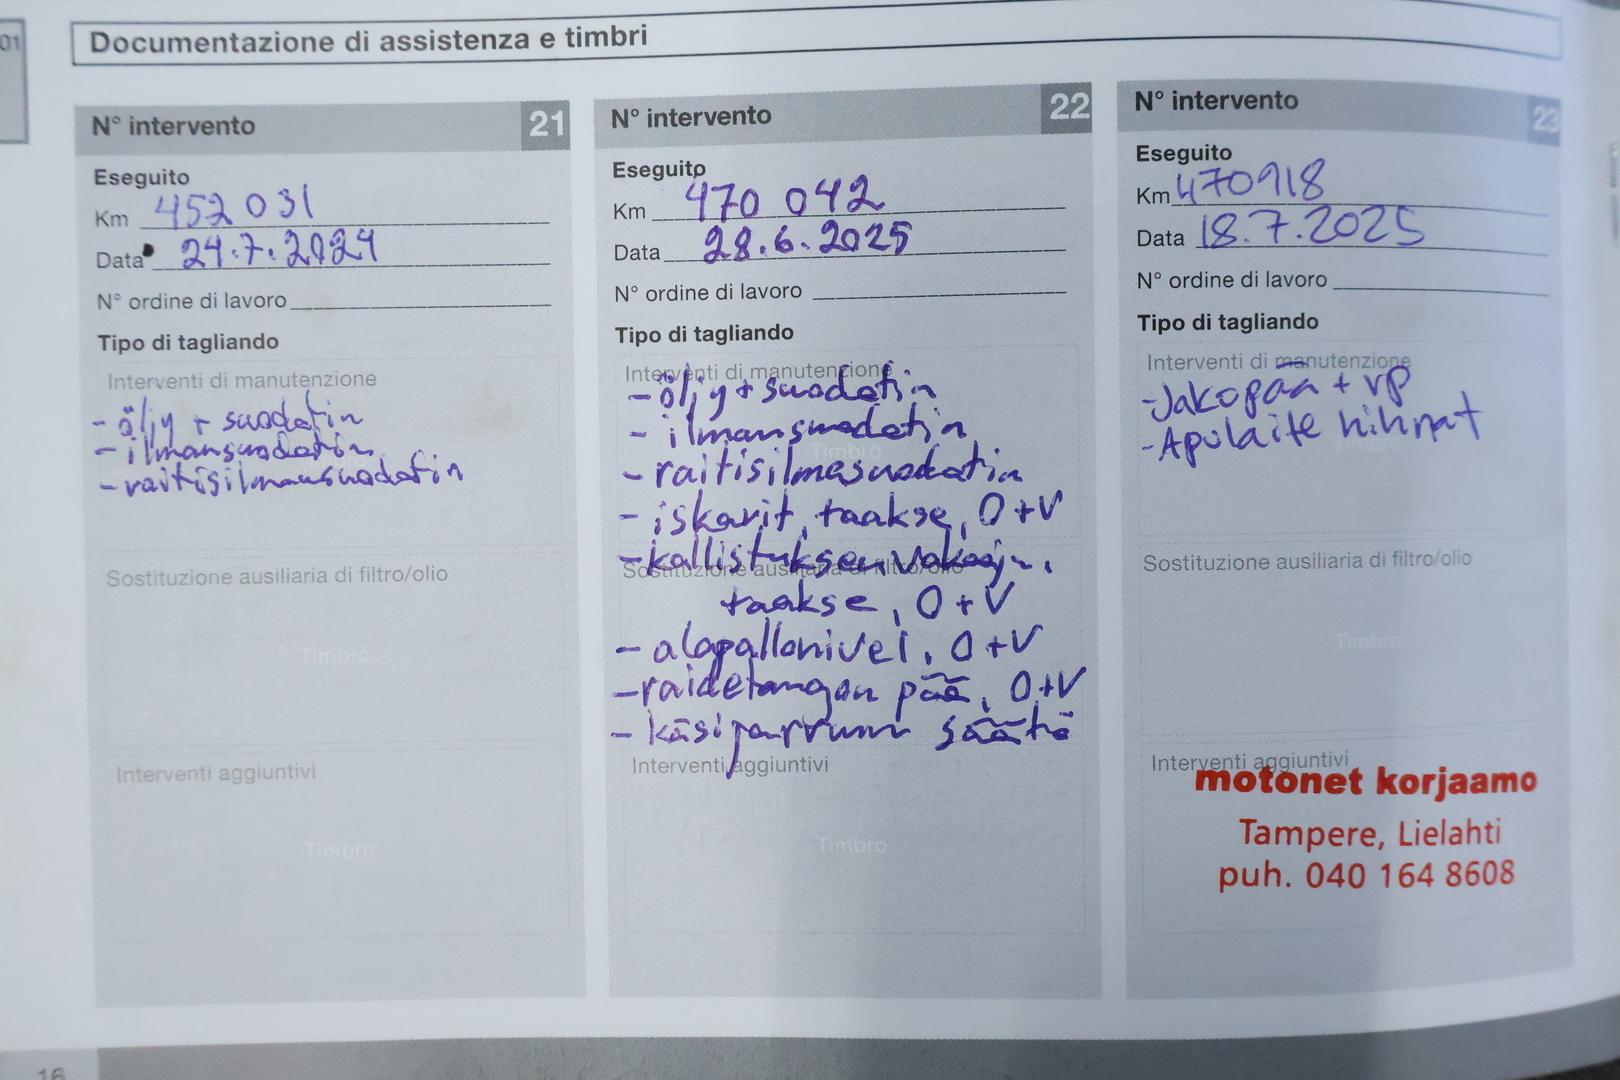 01
Documentazione di assistenza e timbri
N° intervento 21
Eseguito
Km 452 031
Data 24.7.2024
N° ordine di lavoro
Tipo di tagliando
Interventi di manutenzione
- öljy + suodatin
- ilmansuodatin
- raitisilmansuodatin
Sostituzione ausiliaria di filtro/olio
Timbro
Interventi aggiuntivi
Timbro
N° intervento 22
Eseguito
Km 470 042
Data 28.6.2025
N° ordine di lavoro
Tipo di tagliando
Interventi di manutenzione
- öljy + suodatin
- ilmansuodatin
Timbro
- raitisilmasuodatin
- iskarit, taakse, O+V
- kallistuksen
Sostituzione ausiliaria di filtro/olio
taakse, O+V
- alapallonivel, O+V
- raidetangon pää, O+V
- käsijarrun säätö
Interventi aggiuntivi
Timbro
N° intervento 23
Eseguito
Km 470918
Data 18.7.2025
N° ordine di lavoro
Tipo di tagliando
Interventi di manutenzione
- Jakopää + vp
- Apulaite hihnat
Timbro
Sostituzione ausiliaria di filtro/olio
Timbro
Interventi aggiuntivi
motonet korjaamo
Tampere, Lielahti
puh. 040 164 8608
16